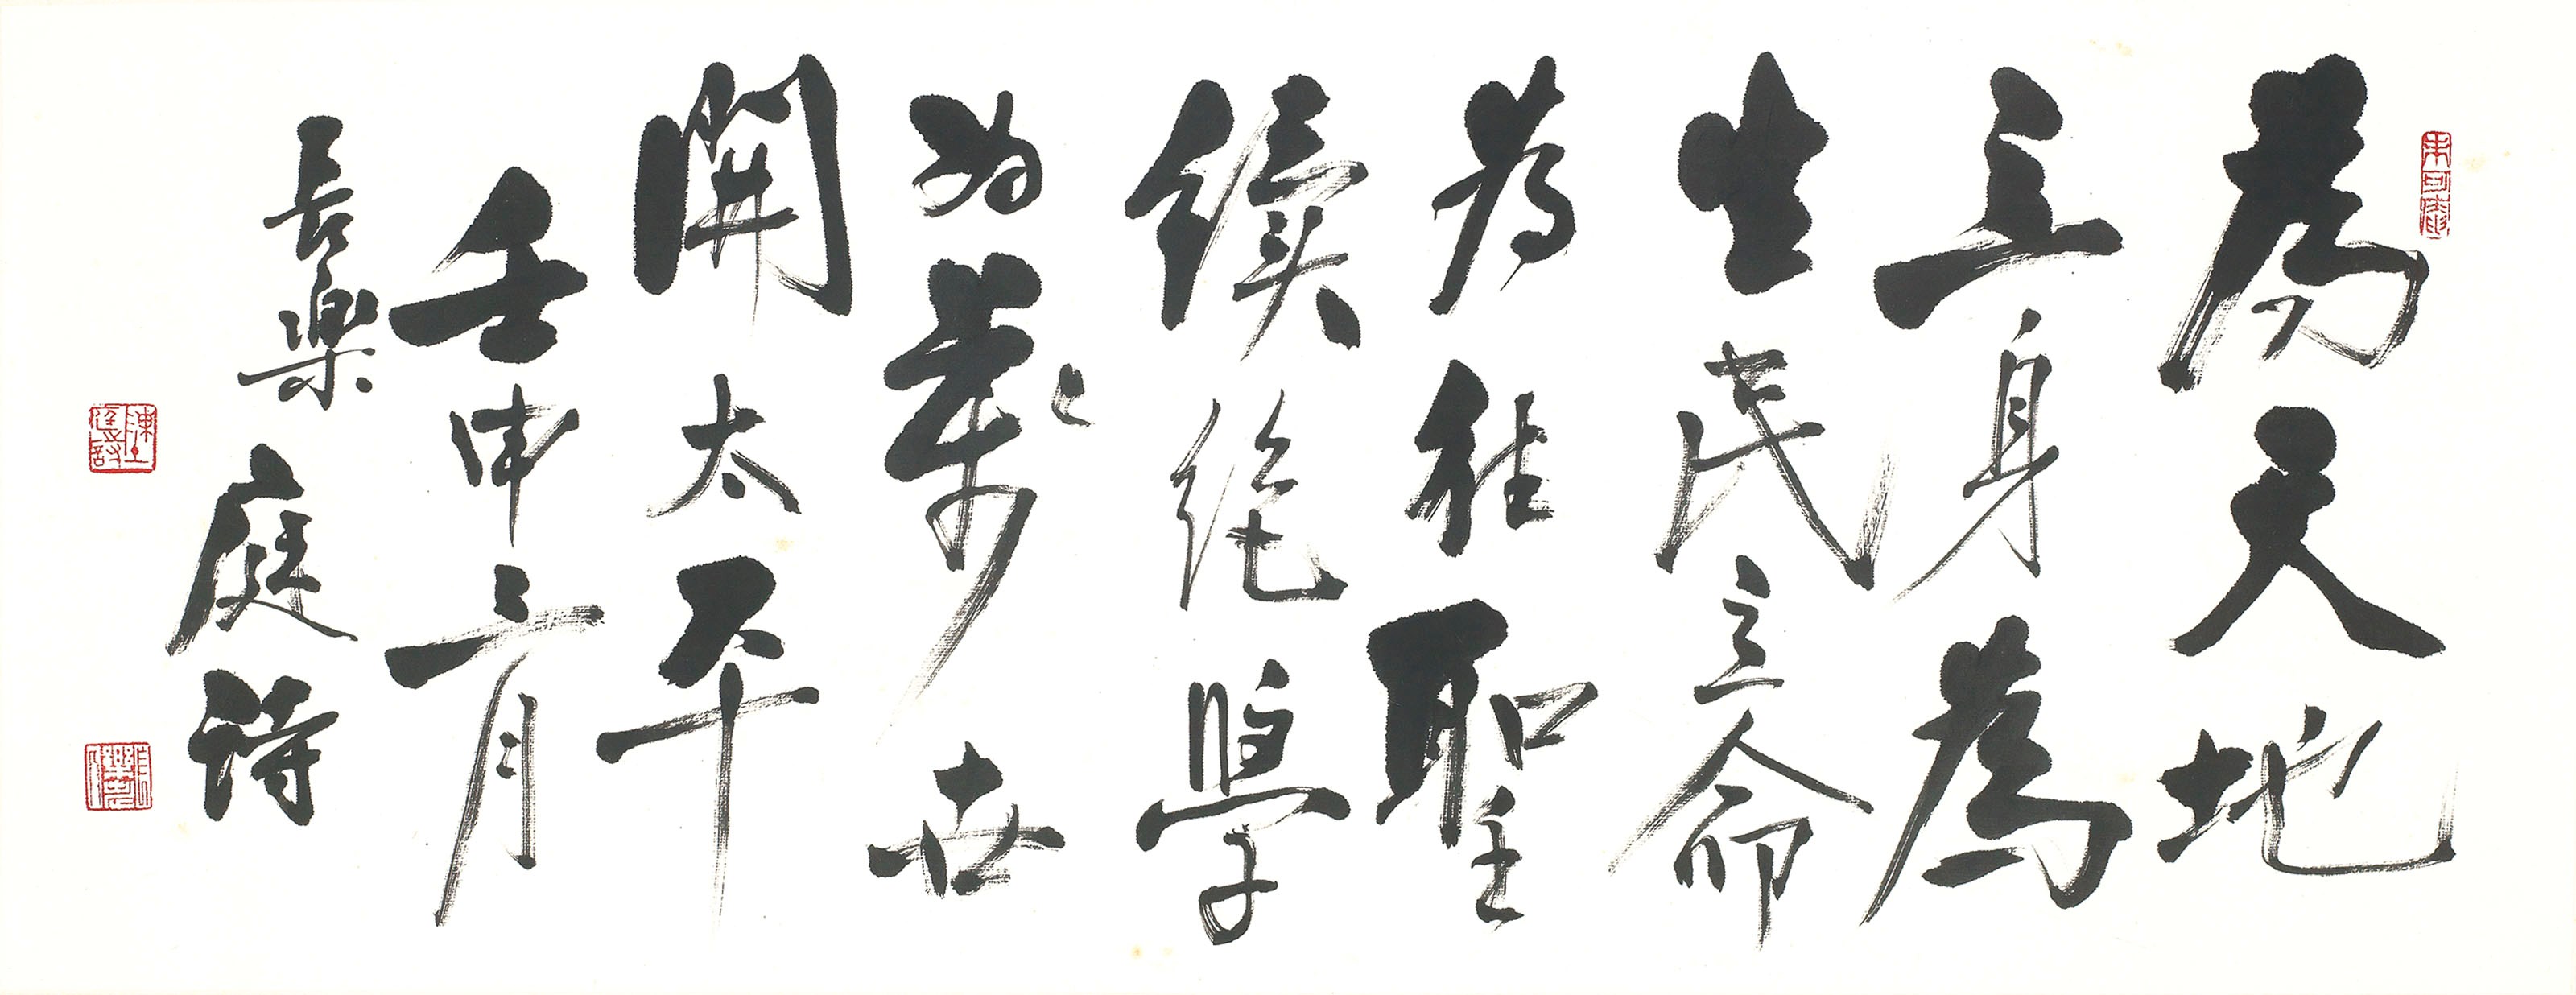 為天地
立身為
生民立命
為往聖
續絕學
为萬世
開太平
壬申三月
長樂 庭詩